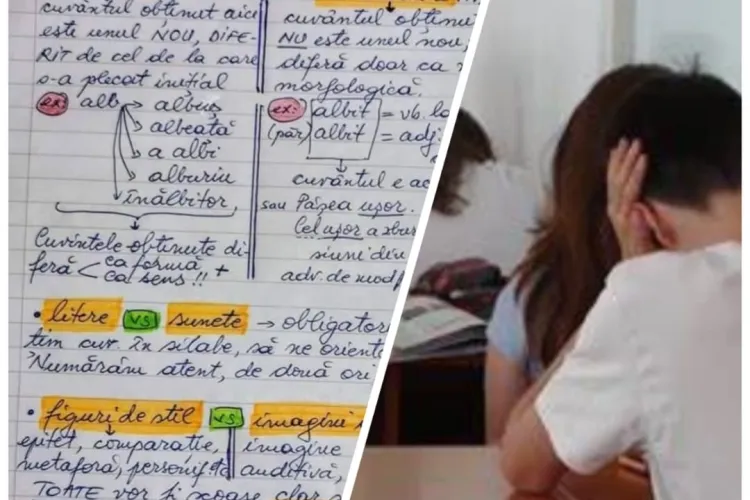 cuvântul obținut aici
este unul NOU, DIFE-
RIT de cel de la care
s-a plecat inițial
ex: alb → albuș
→ albeață
→ a albi
→ alburiu
→ înălbitor,
Cuvintele obținute di-
feră < ca formă +
ca sens !!
cuvântul obținu
NU este unul nou,
diferă doar ca
morfologică.
ex: albit = vb. la
(păr) albit = adj.
cuvântul e ac
sau Pășea ușor.
Cel ușor a
siuni din
adv. de mod
• litere vs sunete → obligator
țim cuv. în silabe, să ne orient
Numărăm atent, de două ori
• figuri de stil vs imagini
epitet, comparație, imagine
metaforă, personif. auditivă,
TOATE vor fi scoase clar